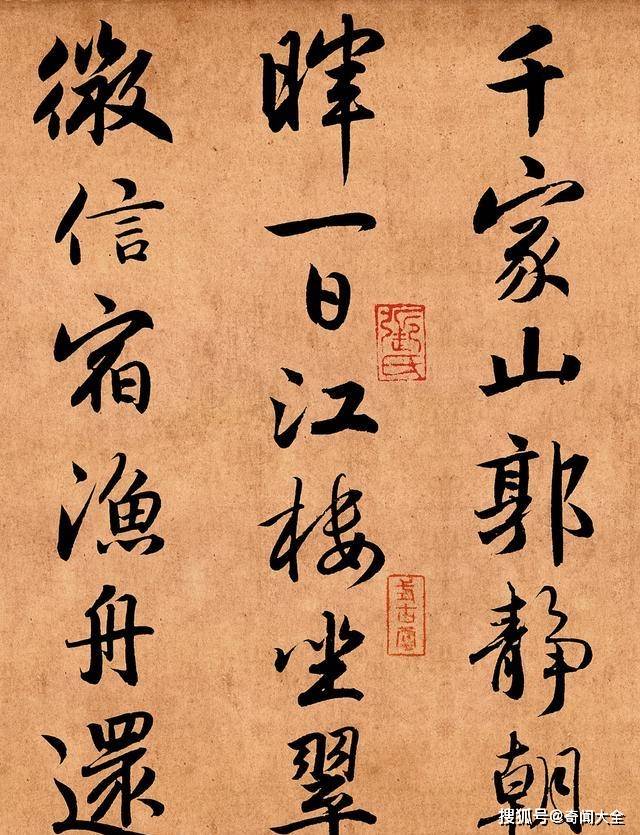 千家山郭靜朝
暉一日江樓坐翠
微信宿漁舟還
搜狐号@奇闻大全